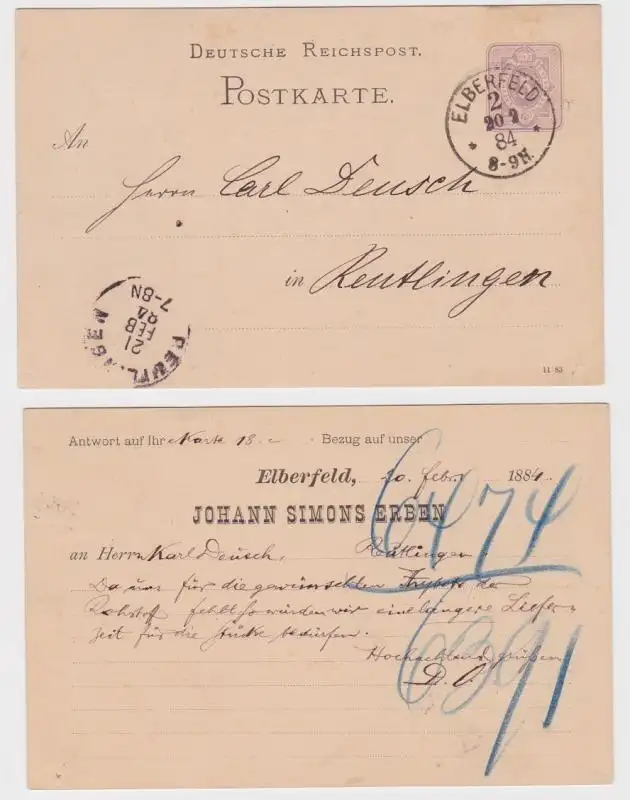 DEUTSCHE REICHSPOST.
POSTKARTE.
ELBERFELD
2
20 2
84
8-9N.
An
Herrn Carl Deusch
in Reutlingen
REUTLINGEN
21
FEB
84
7-8N
11 83
Antwort auf Ihre Karte 18. c Bezug auf unser
Elberfeld, 20. Febr. 1884.
JOHANN SIMONS ERBEN
an Herrn Karl Deusch, Reutlingen.
Da uns für die gewünschten der
Rohstoff fehlt so würden wir eine längere Liefer-
zeit für die Stücke bedürfen.
Hochachtend grüßen
6474
6391